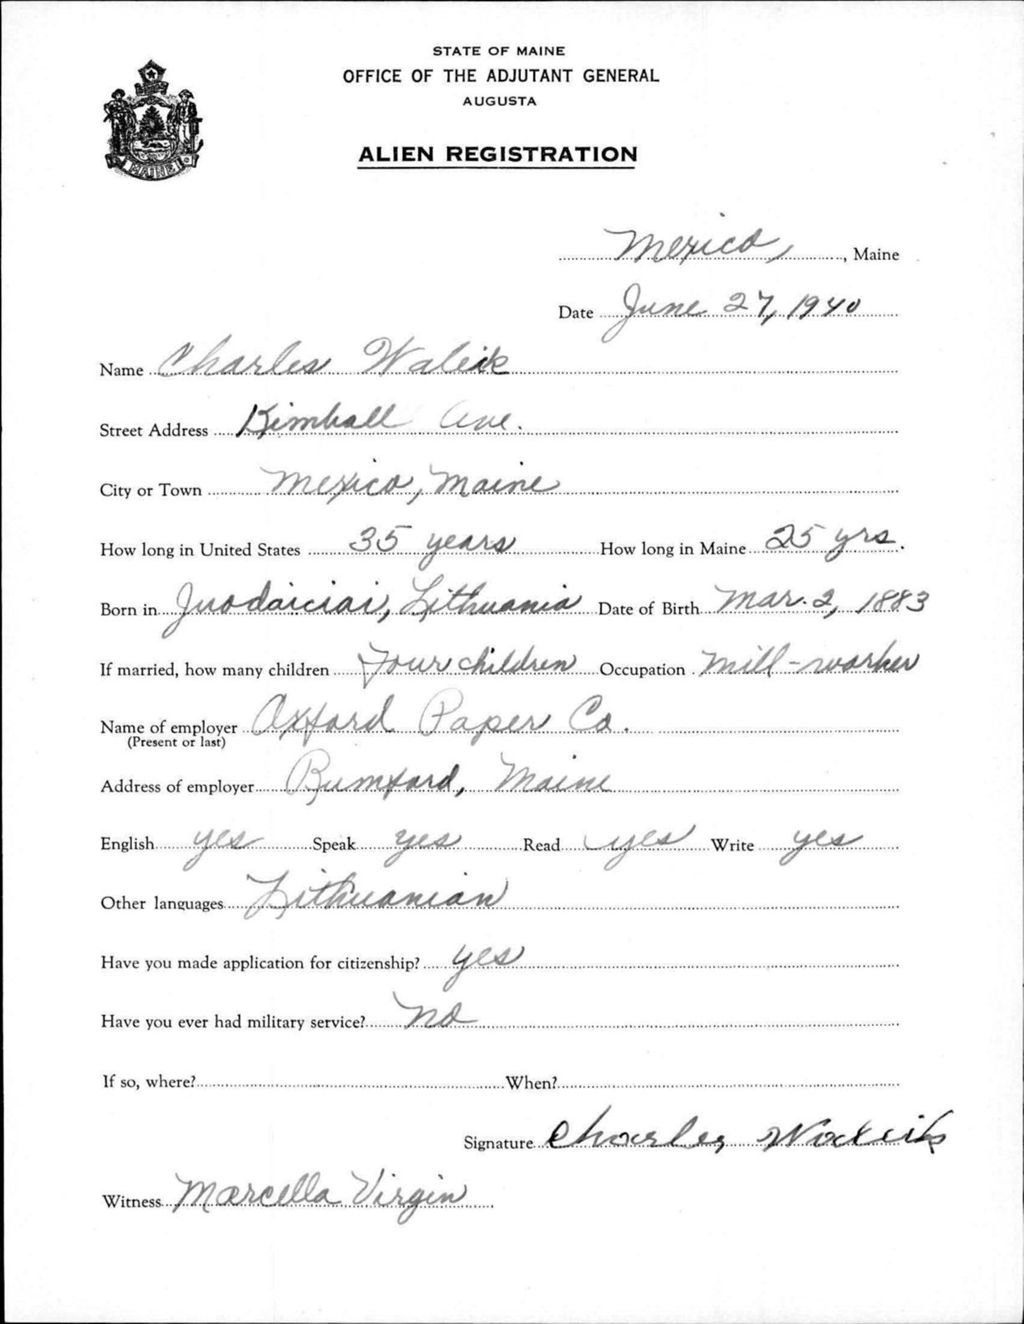 STATE OF MAINE
OFFICE OF THE ADJUTANT GENERAL
AUGUSTA
ALIEN REGISTRATION
MAINE
Mexico, , Maine
Date June 27, 1940
Name Charles Waleik
Street Address Kimball Ave.
City or Town Mexico, Maine
How long in United States 35 years How long in Maine 25 yrs.
Born in Juodaiciai, Lithuania Date of Birth Mar. 2, 1883
If married, how many children Four children Occupation Mill-worker
Name of employer Oxford Paper Co.
(Present or last)
Address of employer Rumford, Maine
English yes Speak yes Read yes Write yes
Other languages Lithuanian
Have you made application for citizenship? yes
Have you ever had military service? No
If so, where? When?
Signature Charles
Witness Marcella Virgin